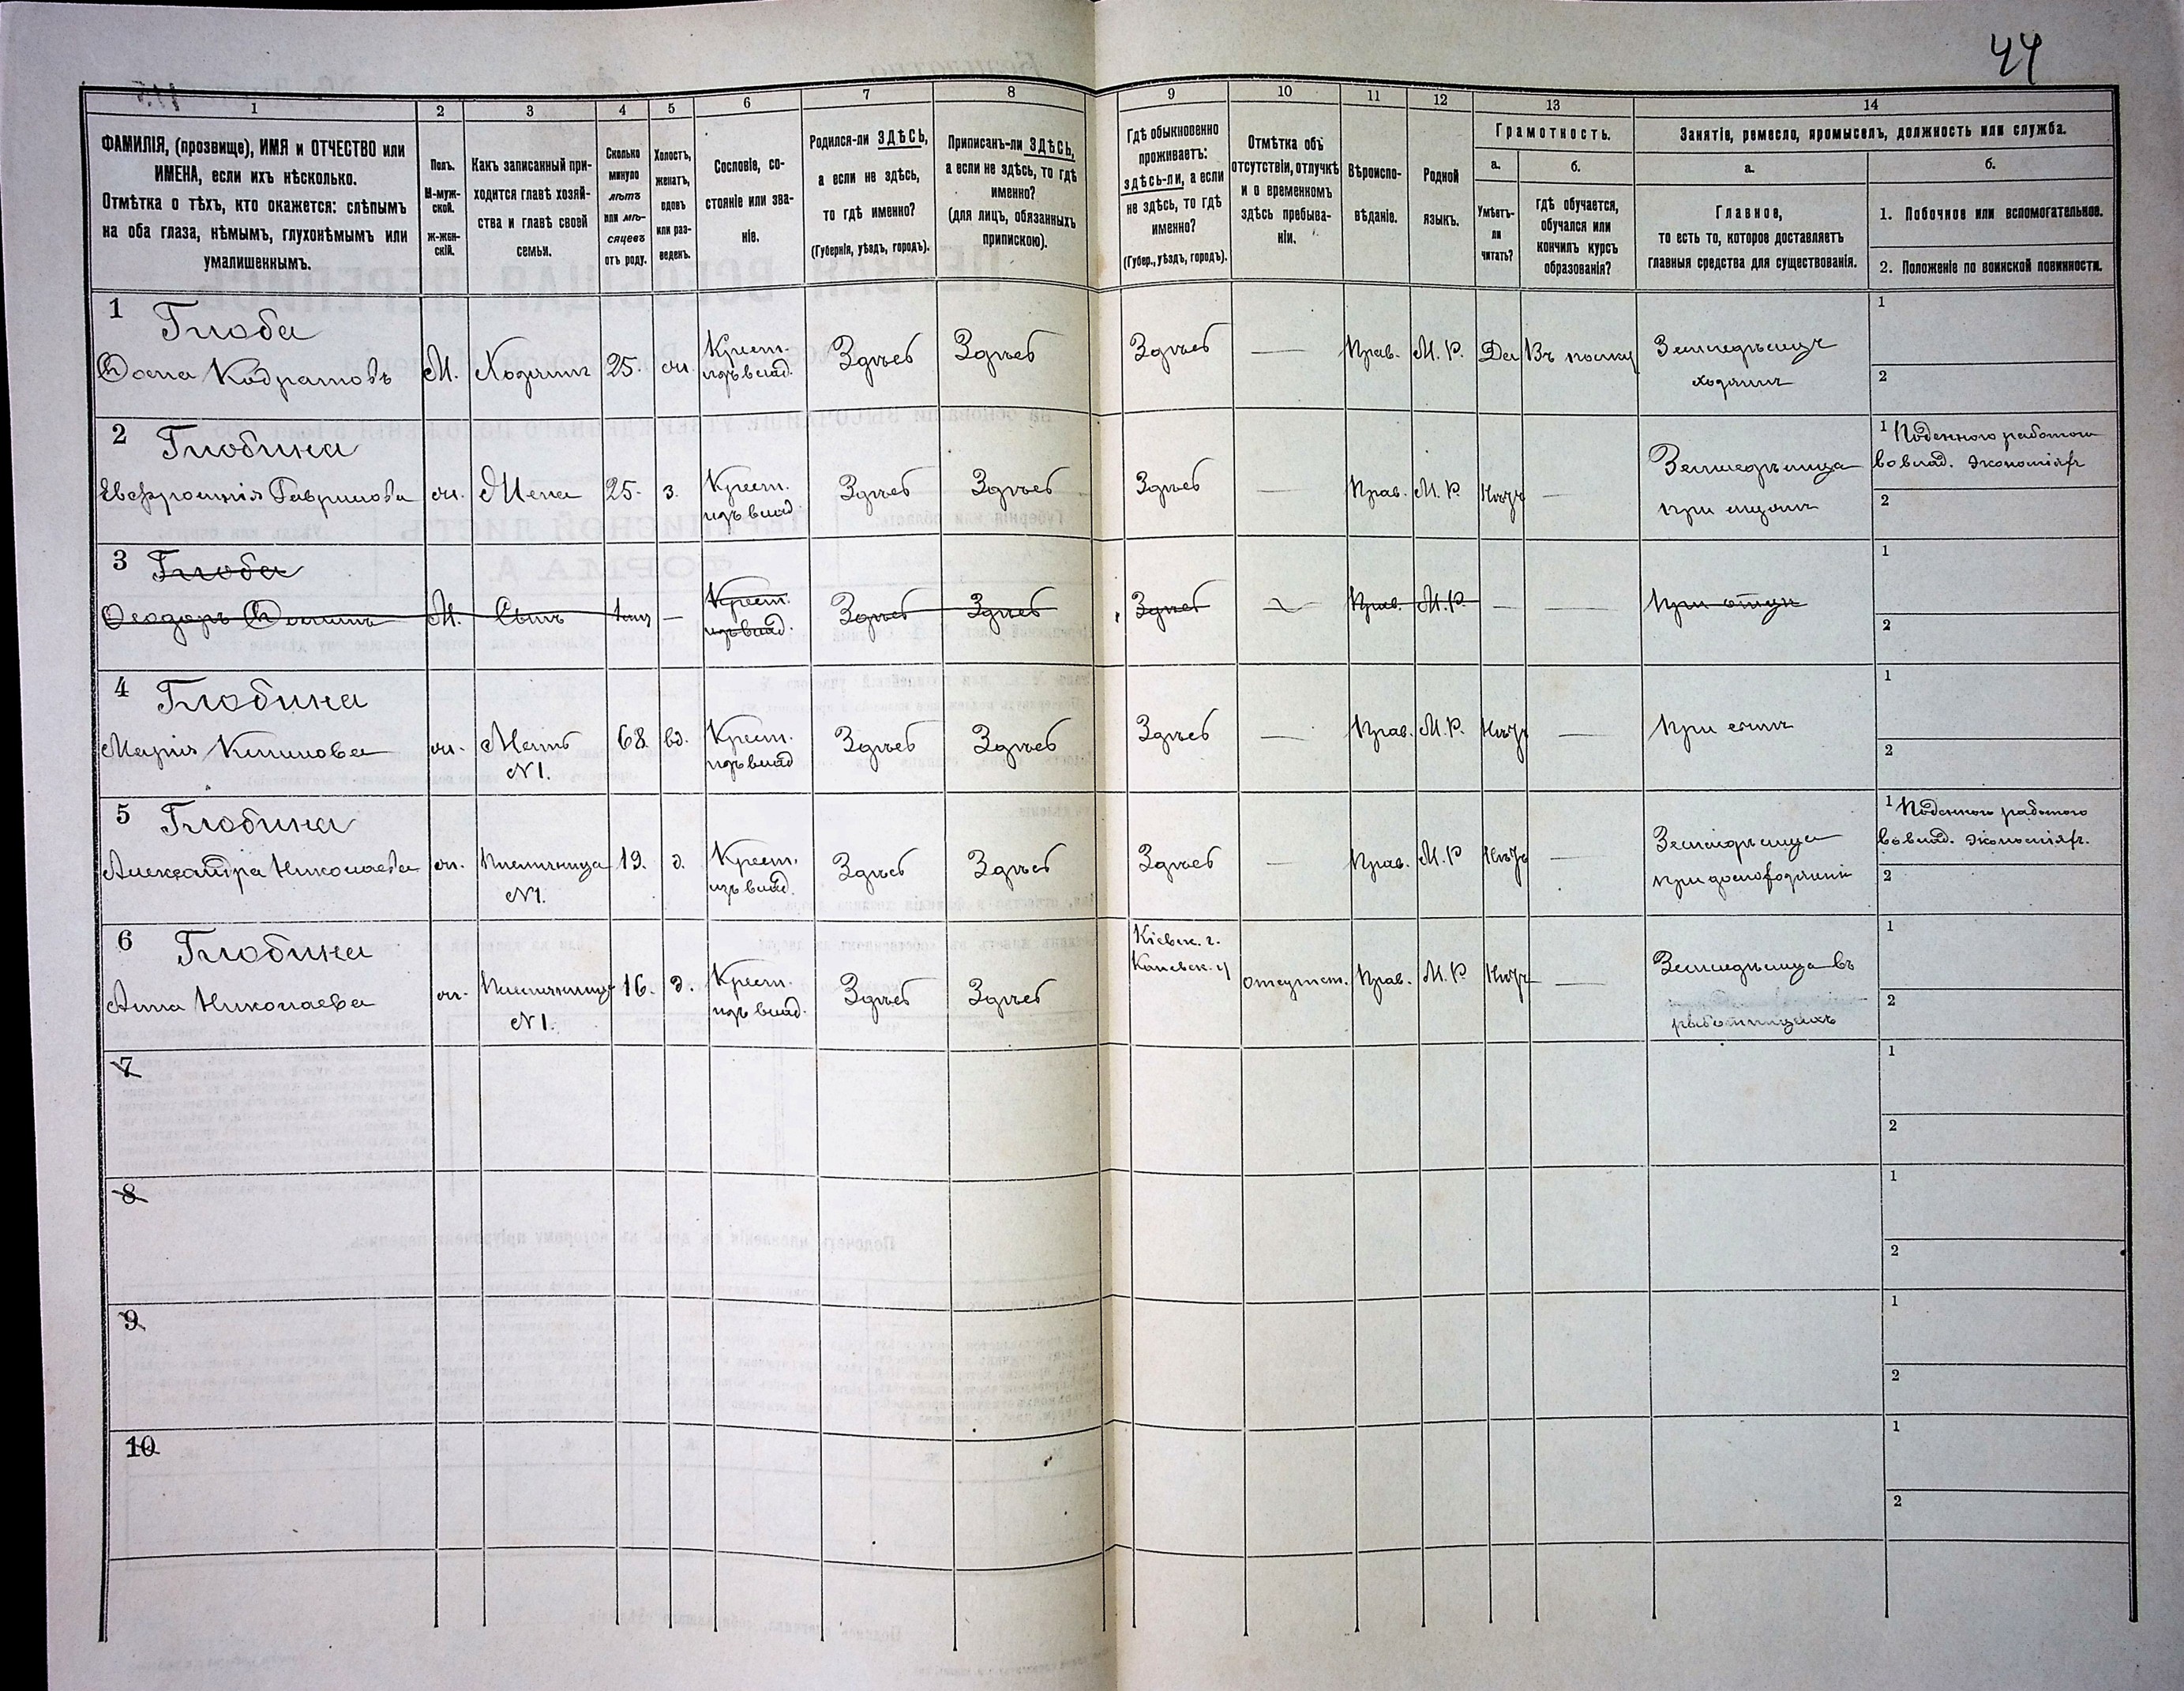 44
1 2 3 4 5 6 7 8 9 10 11 12 13 14
ФАМИЛІЯ, (прозвище), ИМЯ и ОТЧЕСТВО или
ИМЕНА, если ихъ нѣсколько.
Отмѣтка о тѣхъ, кто окажется: слѣпымъ
на оба глаза, нѣмымъ, глухонѣмымъ или
умалишеннымъ.
Полъ.
М-муж-
ской.
Ж-жен-
скій.
Какъ записанный при-
ходится главѣ хозяй-
ства и главѣ своей
семьи.
Сколько
минуло
лѣтъ
или мѣ-
сяцевъ
отъ роду.
Холостъ,
женатъ,
вдовъ
или раз-
веденъ.
Сословіе, со-
стояніе или зва-
ніе.
Родился-ли ЗДѢСЬ,
а если не здѣсь,
то гдѣ именно?
(Губернія, уѣздъ, городъ).
Приписанъ-ли ЗДѢСЬ,
а если не здѣсь, то гдѣ
именно?
(для лицъ, обязанныхъ
припискою).
Гдѣ обыкновенно
проживаетъ:
здѣсь-ли, а если
не здѣсь, то гдѣ
именно?
(Губер., уѣздъ, городъ).
Отмѣтка объ
отсутствіи, отлучкѣ
и о временномъ
здѣсь пребыва-
ніи.
Вѣроиспо-
вѣданіе.
Родной
языкъ.
Грамотность.
а.
Умѣетъ-
ли
читать?
б.
гдѣ обучается,
обучался или
кончилъ курсъ
образованія?
Занятіе, ремесло, промыселъ, должность или служба.
а.
Главное,
то есть то, которое доставляетъ
главныя средства для существованія.
б.
1. Побочное или вспомогательное.
2. Положеніе по воинской повинности.
1 Глоба
Фома Кодратовъ М. Хозяинъ 25. ж. Крест. изъ влад. Здѣсь Здѣсь Здѣсь — Прав. М. Р. Да Въ полку Земледѣлецъ
хозяинъ
1
2
2 Глобина
Евфросинія Гаврилова ж. Жена 25. з. Крест. изъ влад. Здѣсь Здѣсь Здѣсь — Прав. М. Р. Нѣтъ — Земледѣлица
при мужѣ
1 Поденного работою
во влад. экономіях
2
3 Глоба
Феодоръ Фоминъ М. Сынъ — Крест. изъ влад. Здѣсь Здѣсь Здѣсь — Прав. М. Р. — — При отцѣ
1
2
4 Глобина
Марія Климова ж. Мать
N 1. 68. вд. Крест. изъ влад. Здѣсь Здѣсь Здѣсь — Прав. М. Р. Нѣтъ — При сынѣ
1
2
5 Глобина
Александра Николаева ж. Племянница
N 1. 19. д. Крест. изъ влад. Здѣсь Здѣсь Здѣсь — Прав. М. Р Нѣтъ — Земледѣлица
при домохозяинѣ
1 Поденного работою
во влад. экономіях.
2
6 Глобина
Анна Николаева ж. Племянница
N 1. 16. д. Крест. изъ влад. Здѣсь Здѣсь Кіевск. г.
Каневск. у отсутст. Прав. М. Р Нѣтъ — Земледѣлица въ
работницахъ
1
2
7
1
2
8
1
2
9
1
2
10
1
2